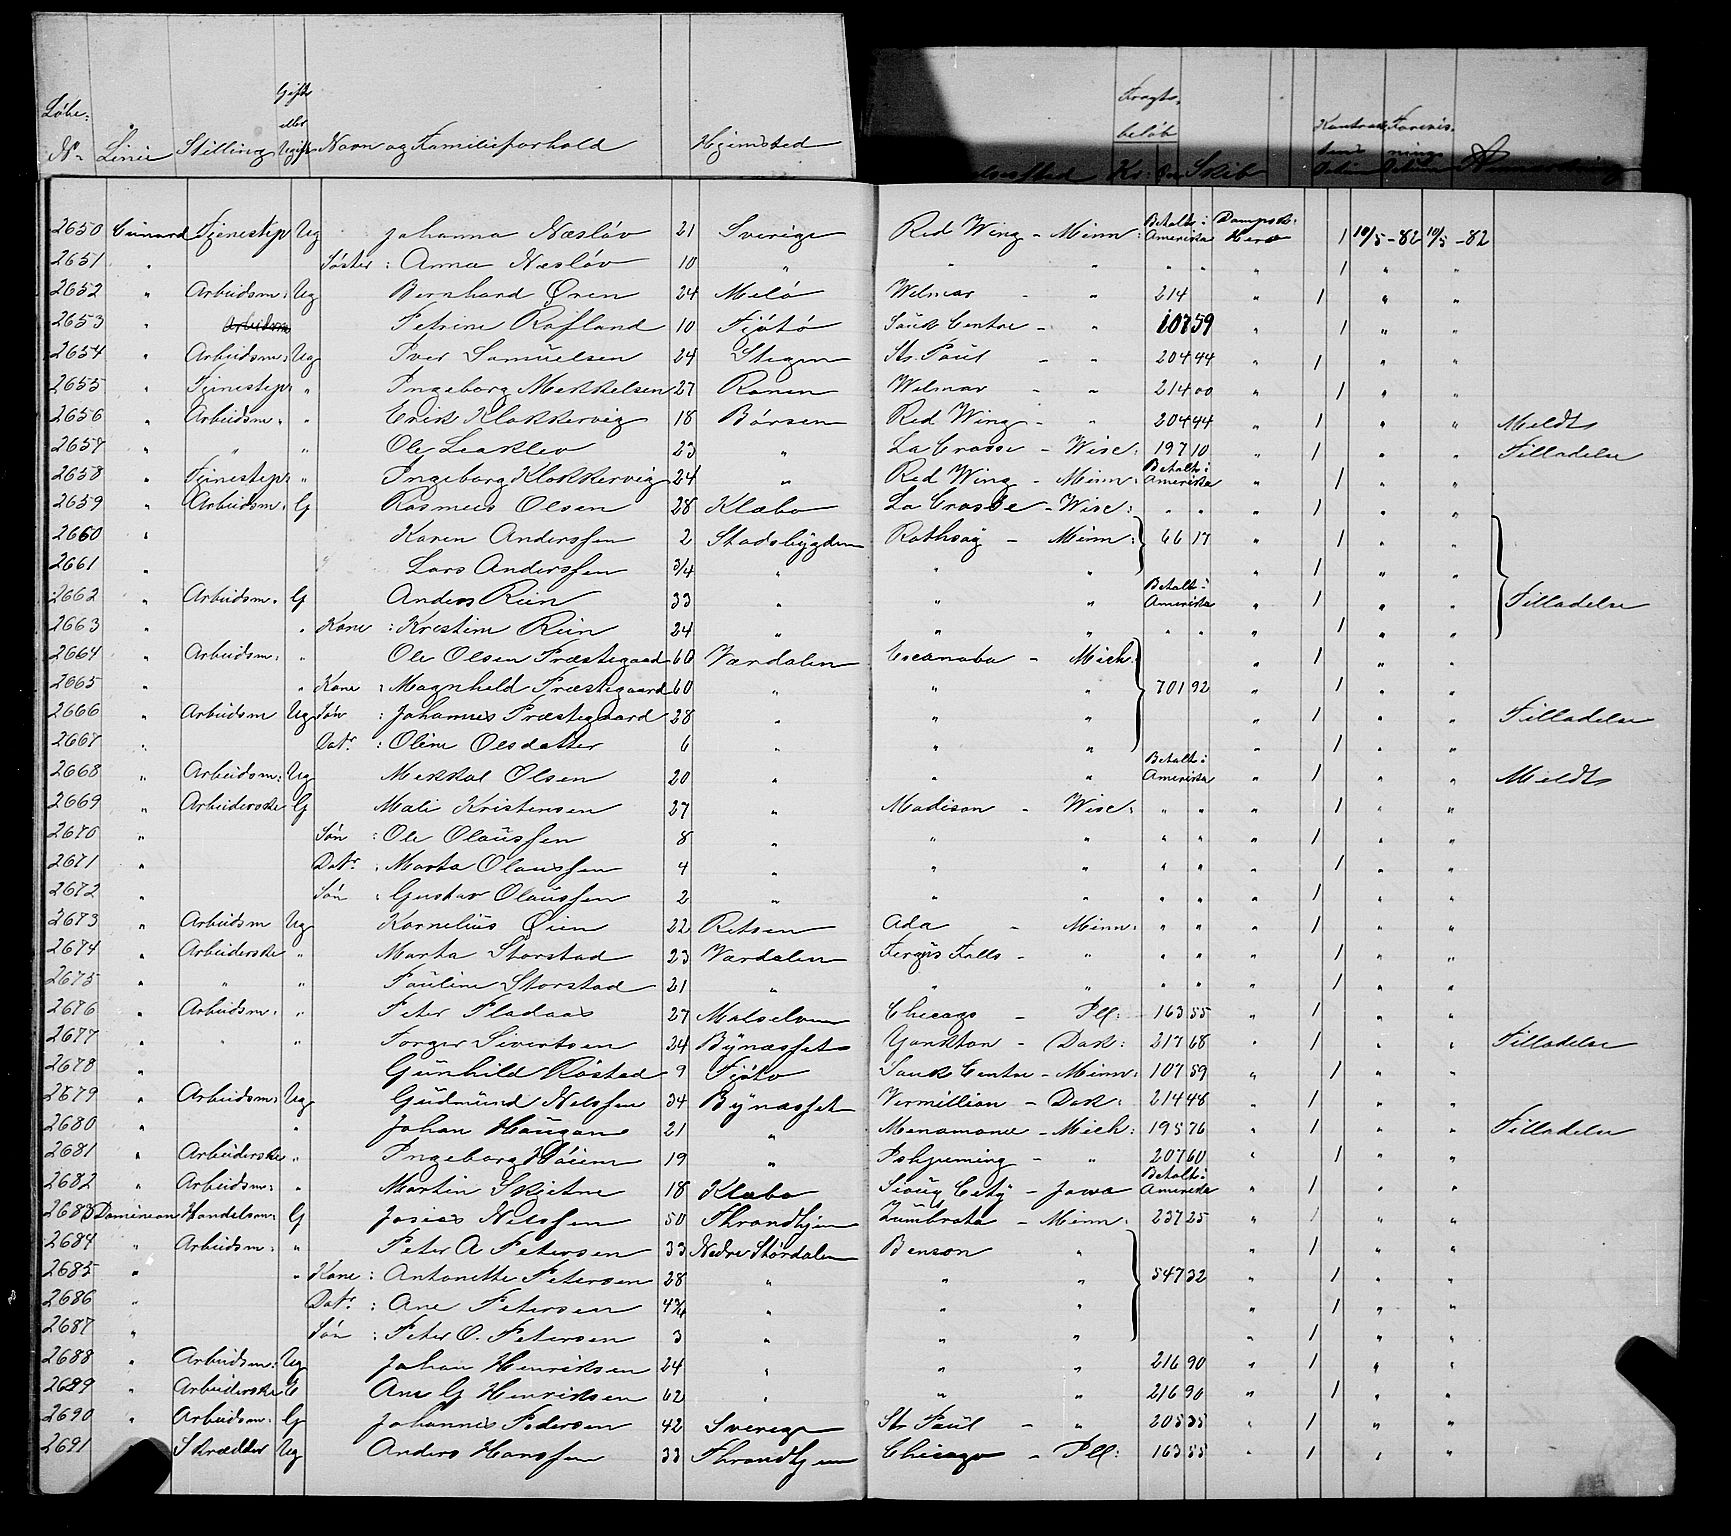 Løbe- Gift Fragt-
eller beløb Kontrak- Forevis-
No Linie Stilling Ugift Navn og Familieforhold Hjemsted Kr: Skib tens ning Anmærkning
Datum
2650 Cunard Tjenestep Ug Johanna Næsløv 21 Sverige Red Wing - Minn: Betalt i Amerika Dampsk: Hero 1 10/5 - 82 10/5 - 82
2651 " Søster : Anna Næsløv 10 " " " " " " 1 " "
2652 " Arbeidsm: Ug Bernhard Øren 24 Melø Wilmar - " 214 " 1 " "
2653 " Arbeidsm Petrine Rafland 10 Tjøtø Sauk Centre - " 107 59 " 1 " "
2654 " Arbeidsm: Ug Iver Samuelsen 24 Stegen St. Paul - " 204 44 " 1 " "
2655 " Tjenestep " Ingeborg Mekkelsen 27 Ranen Wilmar - " 214 00 " 1 " "
2656 " Arbeidsm. " Erik Klokkervig 18 Børsen Red Wing - " 204 44 " 1 " " Meldt
2657 " " " Ole Leaklev 23 " La Crosse - Wisc: 197 10 " 1 " " Tilladelse
2658 " Tjenestep " Ingeborg Klokkervig 24 " Red Wing - Minn: Betalt i Amerika " 1 " "
2659 " Arbeidsm. G Rasmus Olsen 28 Klæbo La Crosse - Wisc: " " " 1 " "
2660 " Karen Anderssen 2 Stadsbygden Rothsay - Minn: 66 17 " 1 " "
2661 " Lars Anderssen 3/4 " " " " 1 " "
2662 " Arbeidsm. G Anders Rein 33 " " " Betalt i Amerika " 1 " " Tilladelse
2663 " " Kone : Kristine Rein 24 " " " " " " 1 " "
2664 " Arbeidsm: " Ole Olsen Præstegaard 60 Værdalen Escanaba - Mich: " 1 " "
2665 " " Kone : Magnhild Præstegaard 60 " " " 701 92 " 1 " "
2666 " Arbeidsm Ug Søn : Johannes Præstegaard 28 " " " " 1 " " Tilladelse
2667 " Datr : Oline Olsdatter 6 " " " " 1 " "
2668 " Arbeidsm: Ug Mekkal Olsen 20 " " " Betalt i Amerika " 1 " " Meldt
2669 " Arbeiderske G Mali Kristensen 27 " Madison - Wisc: " " " 1 " "
2670 " Søn : Ole Olaussen 8 " " " " " " 1 " "
2671 " Datr : Marta Olaussen 4 " " " " " " 1 " "
2672 " Søn : Gustav Olaussen 2 " " " " " " 1 " "
2673 " Arbeidsm Ug Kornelius Øien 22 Retsen Ada - Minn: " " " 1 " "
2674 " Arbeiderske " Marta Storstad 23 Værdalen Fergus Falls - " " " " 1 " "
2675 " " " Pauline Storstad 21 " " " " " " 1 " "
2676 " Arbeidsm: " Peter Fladaas 27 Malselven Chicago - Ill: 163 55 " 1 " "
2677 " " " Torger Sivertsen 24 Bynæsset Yankton - Dak: 217 68 " 1 " " Tilladelse
2678 " Gunhild Røstad 9 Tjøtø Sauk Centre - Minn: 107 59 " 1 " "
2679 " Arbeidsm: Ug Gudmund Nelssen 34 Bynæsset Vermillion - Dak: 214 48 " 1 " "
2680 " " Johan Haugan 21 " Menamonee - Mich: 195 76 " 1 " " Tilladelse
2681 " Arbeiderske " Ingeborg Høiem 19 " Ishpeming - " 207 60 " 1 " "
2682 " Arbeidsm: " Martin Skjetne 18 Klæbo Sioux City - Jowa Betalt i Amerika " 1 " "
2683 Dominion Handelsm: G Josias Nelssen 50 Throndhjem Zumbrota - Minn: 237 25 " 1 " "
2684 " Arbeidsm: " Peter A Petersen 33 Nedre Størdalen Benson " " 1 " "
2685 " " Kone : Antonette Petersen 28 " " " 547 32 " 1 " "
2686 " Datr : Ane Petersen 4 3/4 " " " " 1 " "
2687 " Søn : Peter O. Petersen 3 " " " " 1 " "
2688 " Arbeidsm: Ug Johan Henriksen 24 " " " 216 90 " 1 " "
2689 " Arbeiderske E Ane G Henriksen 62 " " " 216 90 " 1 " "
2690 " Arbeidsm: G Johannes Pedersen 42 Sverige St. Paul - " 205 35 " 1 " "
2691 " Skrædder Ug Anders Hanssen 33 Throndhjem Chicago - Ill: 163 55 " 1 " "